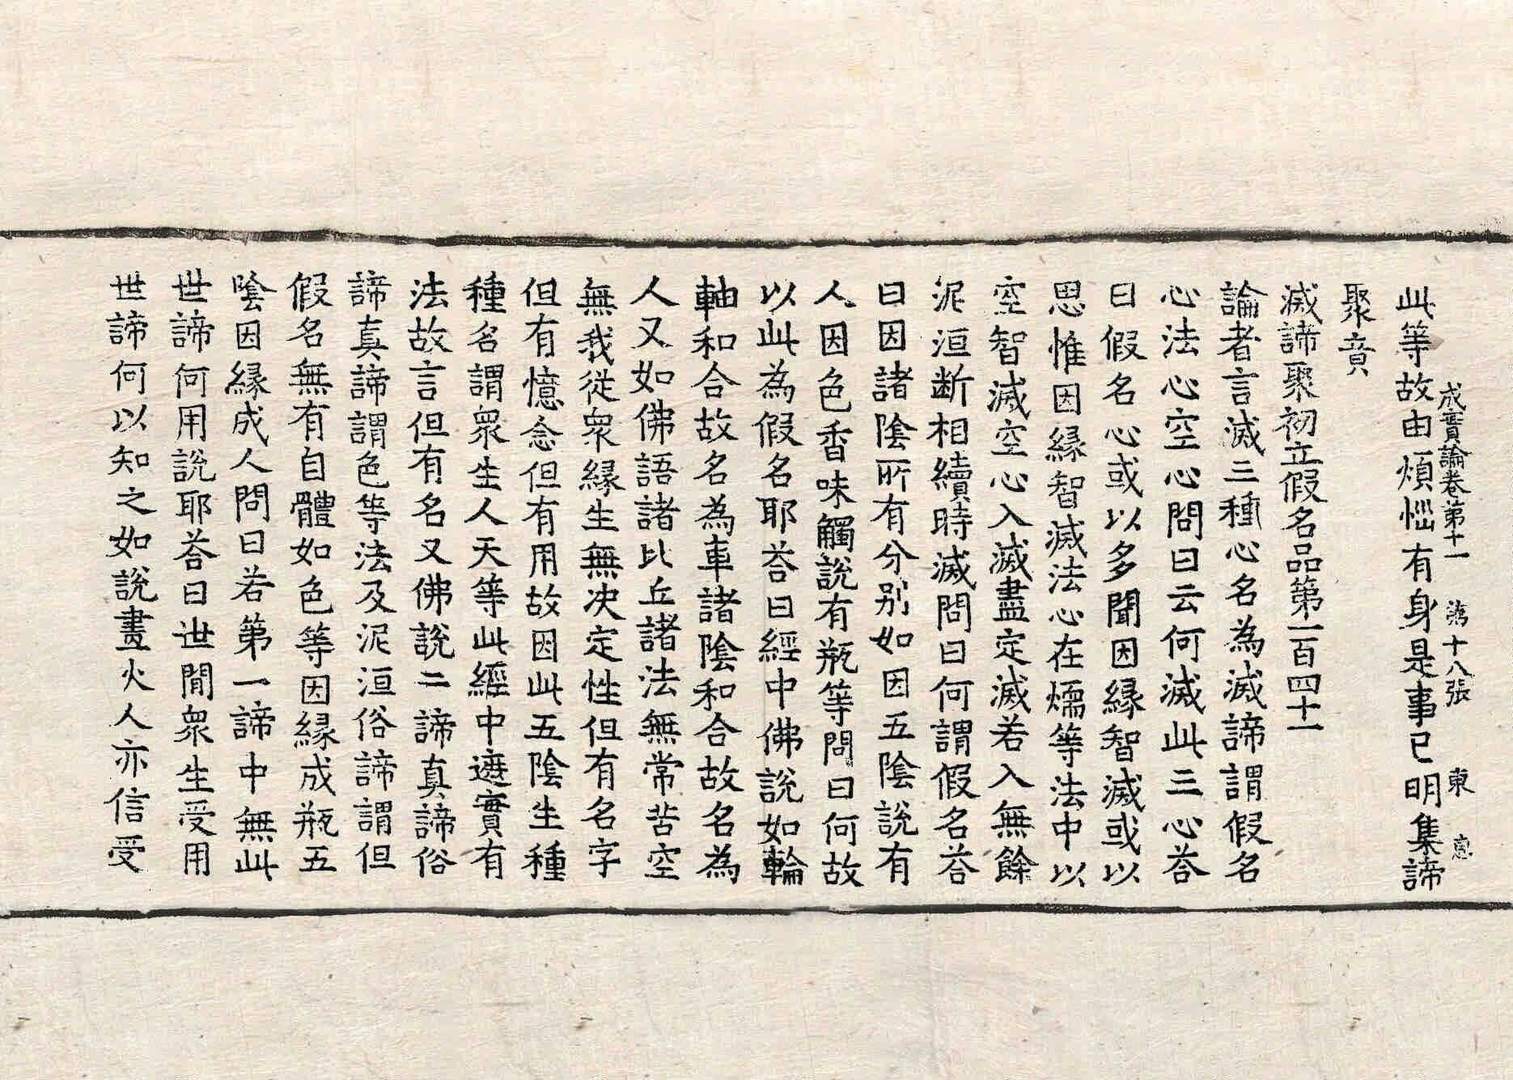 成實論卷第十一 第十八張 東
此等故由煩惱有身是事已明集諦
聚竟
滅諦聚初立假名品第一百四十一
論者言滅三種心名為滅諦謂假名
心法心空心問曰云何滅此三心荅
曰假名心或以多聞因緣智滅或以
思惟因緣智滅法心在煗等法中以
空智滅空心入滅盡定滅若入無餘
泥洹斷相續時滅問曰何謂假名荅
曰因諸陰所有分別如因五陰說有
人因色香味觸說有瓶等問曰何故
以此為假名耶荅曰經中佛說如輪
軸和合故名為車諸陰和合故名為
人又如佛語諸比丘諸法無常苦空
無我從衆緣生無决定性但有名字
但有憶念但有用故因此五陰生種
種名謂衆生人天等此經中遮實有
法故言但有名又佛說二諦真諦俗
諦真諦謂色等法及泥洹俗諦謂但
假名無有自體如色等因緣成瓶五
陰因緣成人問曰若第一諦中無此
世諦何用說耶荅曰世閒衆生受用
世諦何以知之如說畫火人亦信受